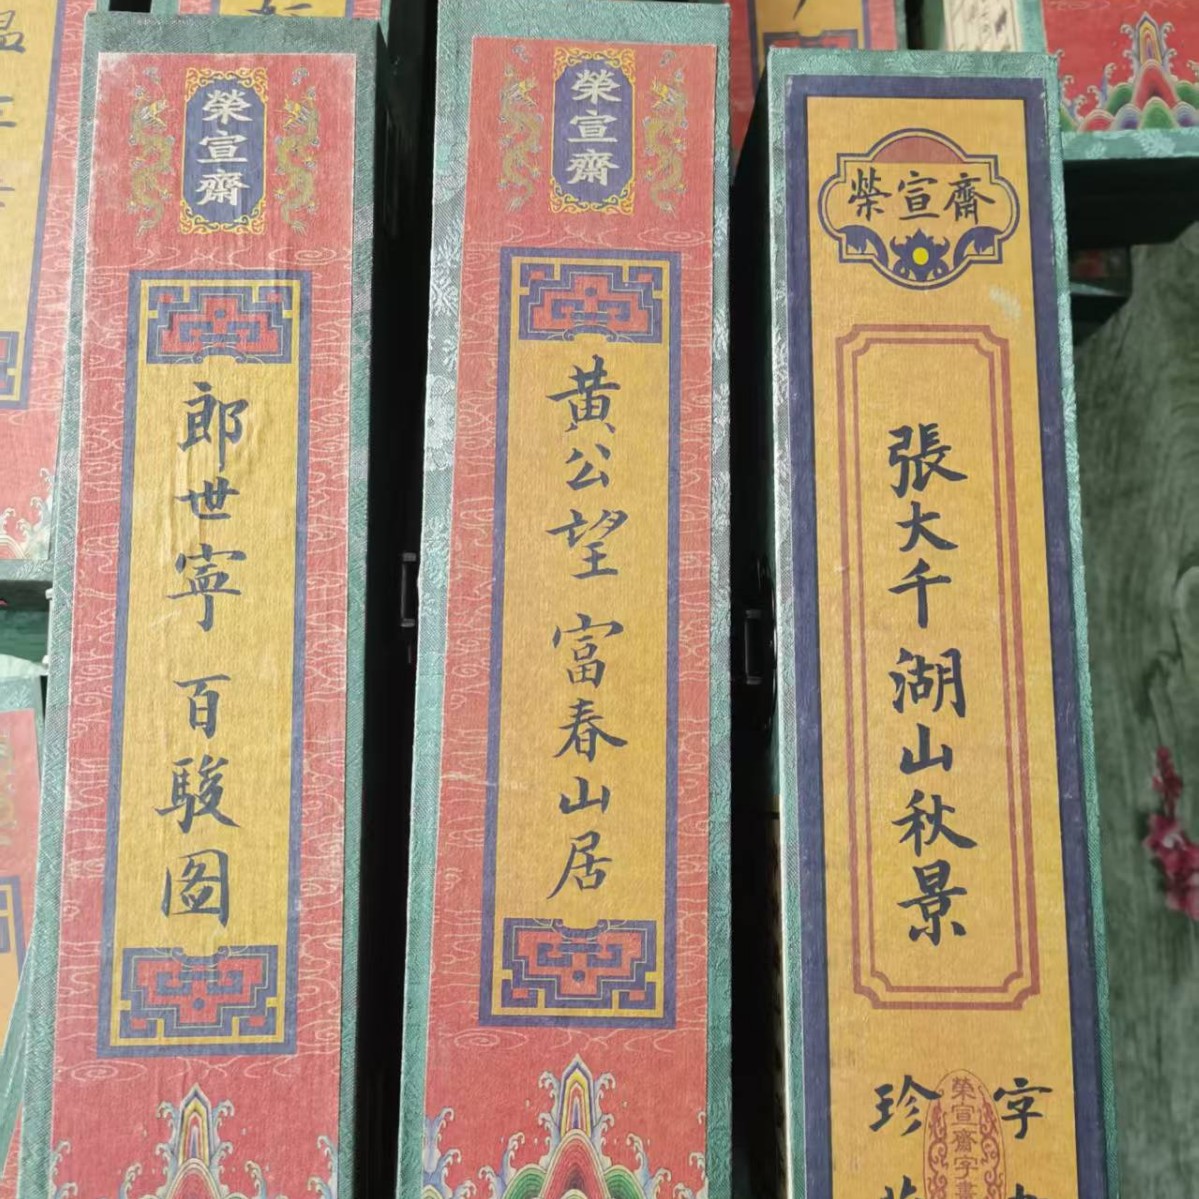 榮宣齋
郎世寧 百駿圖
榮宣齋
黃公望 富春山居
榮宣齋
張大千 湖山秋景
珍
榮宣齋字畫
字